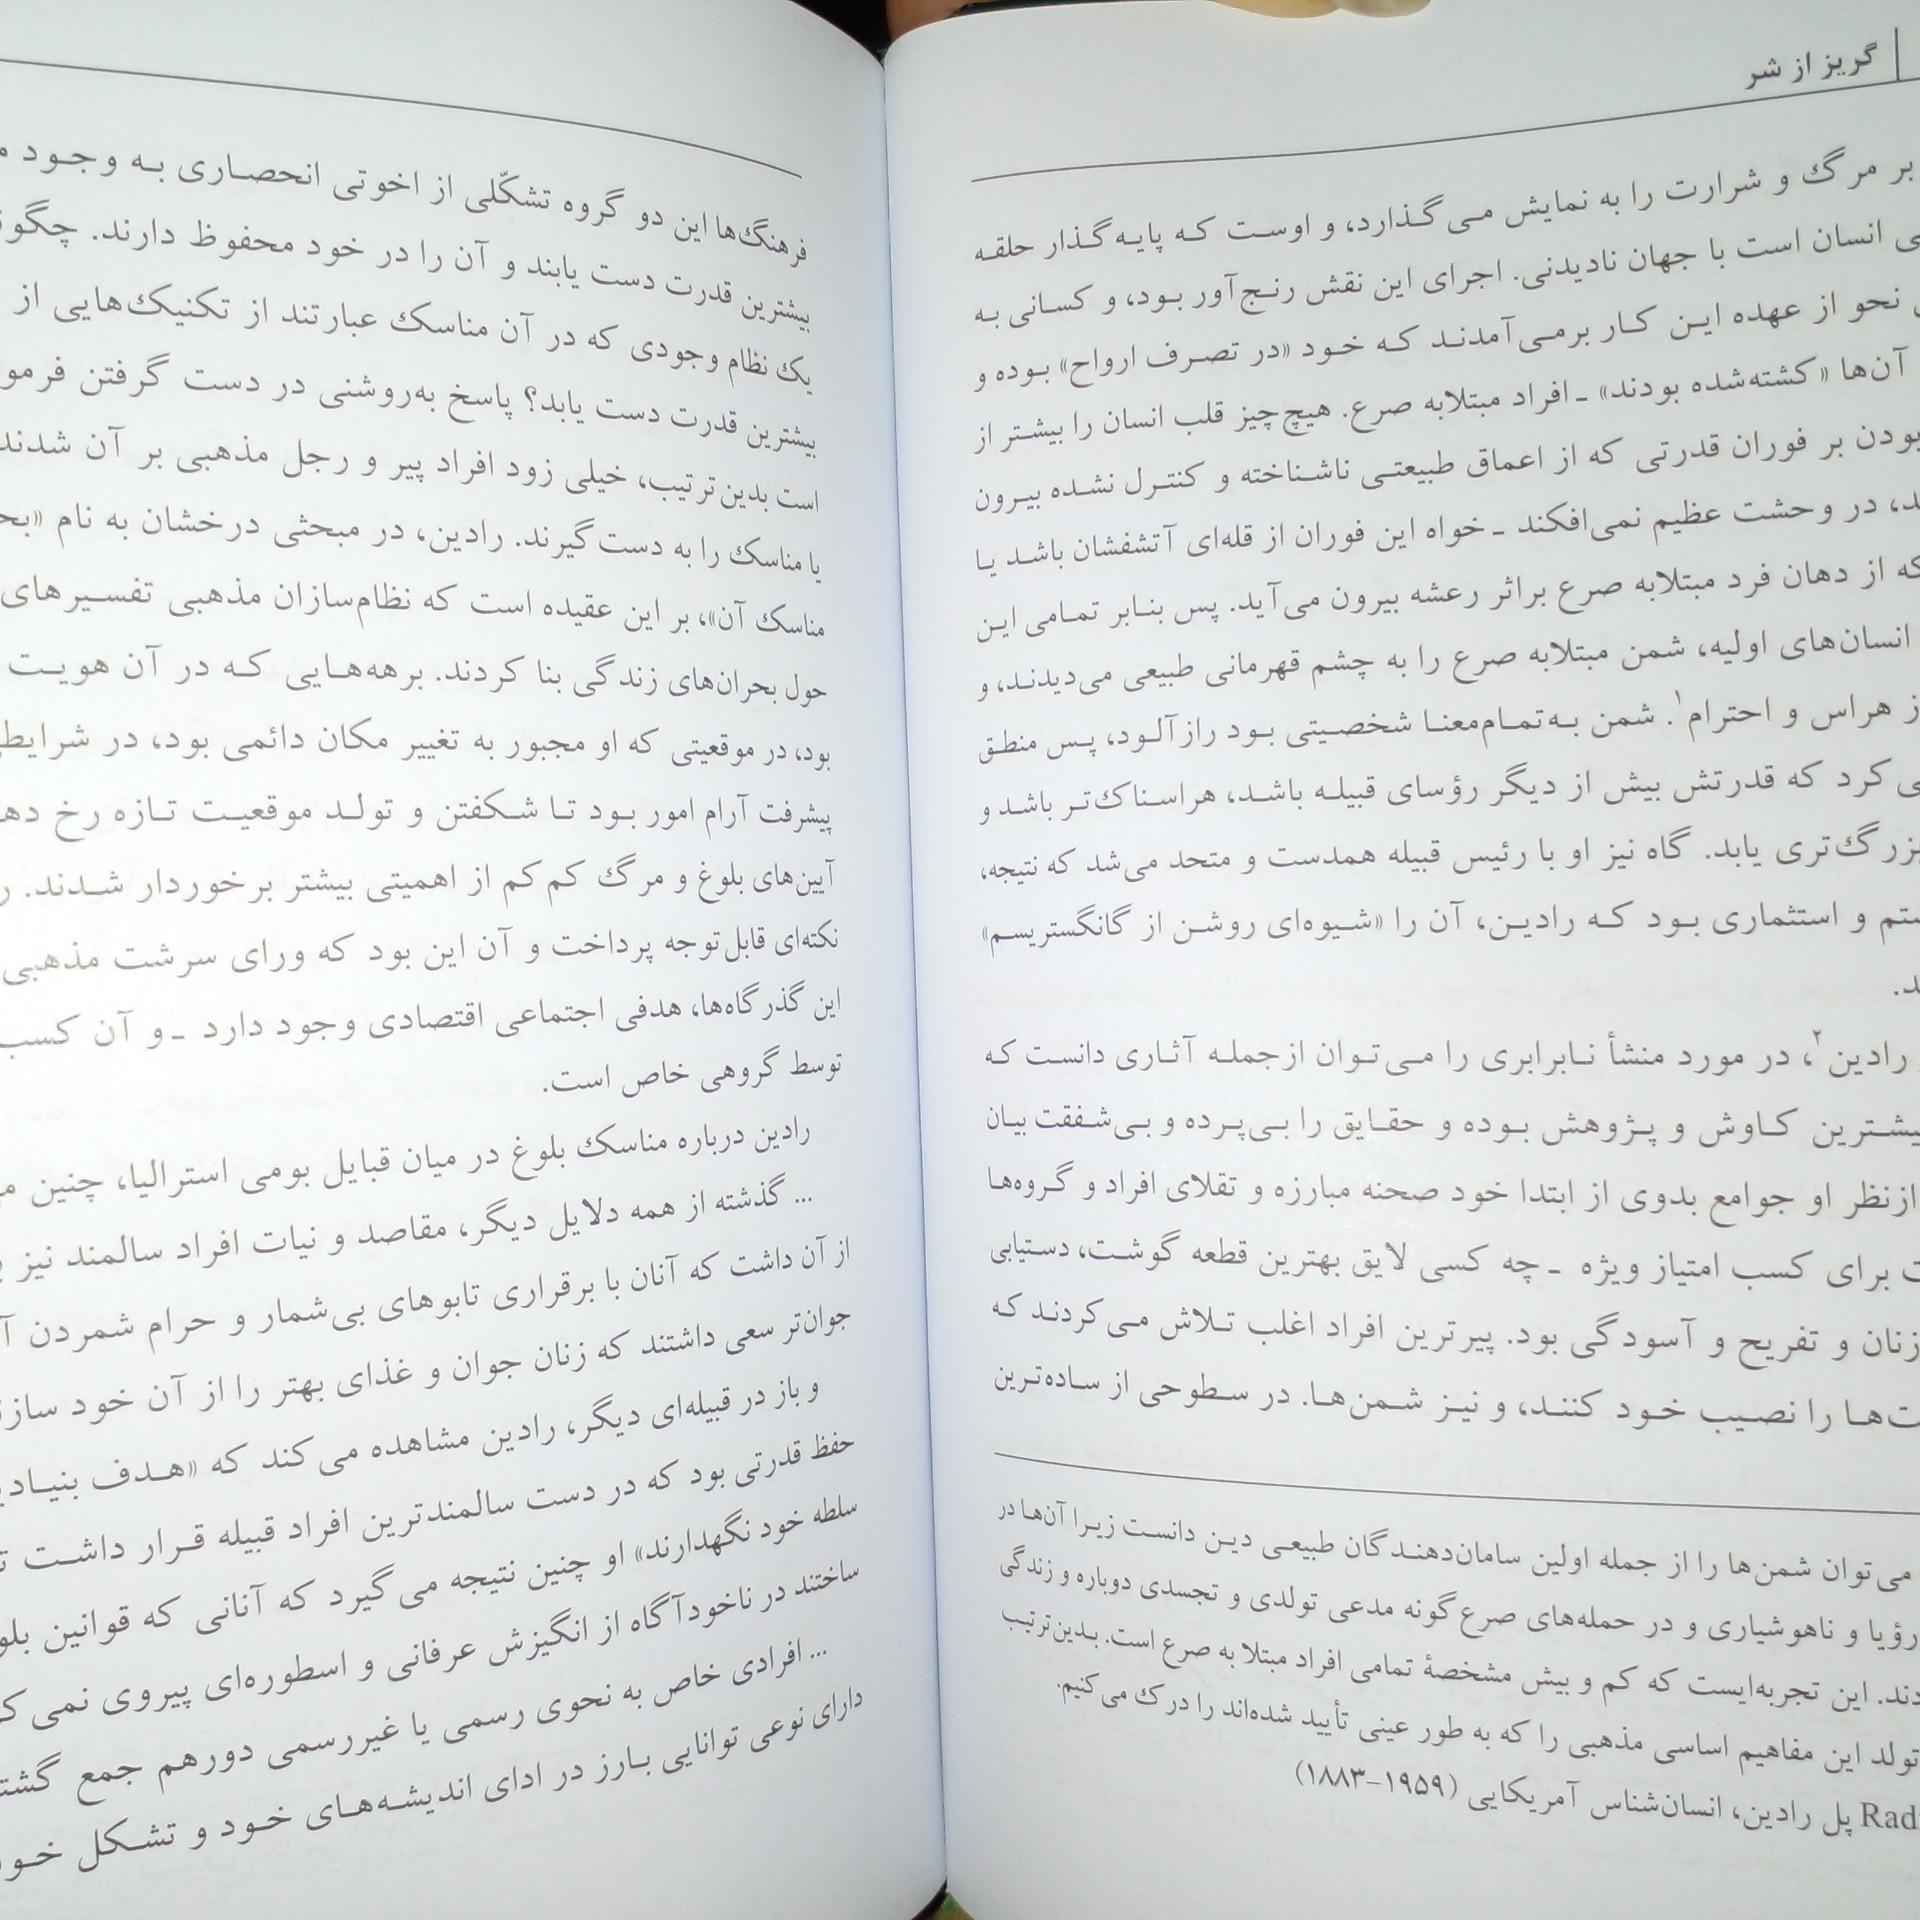 گریز از شر
بر مرگ و شرارت را به نمایش می‌گذارد، و اوست که پایه‌گذار حلقه
انسان است با جهان نادیدنی. اجرای این نقش رنج‌آور بود، و کسانی به
نحو از عهده این کار برمی‌آمدند که خود «در تصرف ارواح» بوده و
آن‌ها «کشته‌شده بودند» ـ افراد مبتلابه صرع. هیچ‌چیز قلب انسان را بیشتر از
بودن بر فوران قدرتی که از اعماق طبیعتی ناشناخته و کنترل نشده بیرون
در وحشت عظیم نمی‌افکند ـ خواه این فوران از قله‌ای آتشفشان باشد یا
که از دهان فرد مبتلابه صرع براثر رعشه بیرون می‌آید. پس بنابر تمامی این
انسان‌های اولیه، شمن مبتلابه صرع را به چشم قهرمانی طبیعی می‌دیدند، و
از هراس و احترام۱. شمن به‌تمام‌معنا شخصیتی بود رازآلود، پس منطق
کرد که قدرتش بیش از دیگر رؤسای قبیله باشد، هراسناک‌تر باشد و
بزرگ‌تری یابد. گاه نیز او با رئیس قبیله همدست و متحد می‌شد که نتیجه،
ستم و استثماری بود که رادین، آن را «شیوه‌ای روشن از گانگستریسم»
رادین۲، در مورد منشأ نابرابری را می‌توان ازجمله آثاری دانست که
بیشترین کاوش و پژوهش بوده و حقایق را بی‌پرده و بی‌شفقت بیان
ازنظر او جوامع بدوی از ابتدا خود صحنه مبارزه و تقلای افراد و گروه‌ها
برای کسب امتیاز ویژه ـ چه کسی لایق بهترین قطعه گوشت، دستیابی
زنان و تفریح و آسودگی بود. پیرترین افراد اغلب تلاش می‌کردند که
را نصیب خود کنند، و نیز شمن‌ها. در سطوحی از ساده‌ترین
می‌توان شمن‌ها را از جمله اولین سامان‌دهندگان طبیعی دین دانست زیرا آن‌ها در
رؤیا و ناهوشیاری و در حمله‌های صرع‌گونه مدعی تولدی و تجسدی دوباره و زندگی
این تجربه‌ایست که کم و بیش مشخصۀ تمامی افراد مبتلا به صرع است. بدین‌ترتیب
تولد این مفاهیم اساسی مذهبی را که به طور عینی تأیید شده‌اند را درک می‌کنیم.
پل رادین، انسان‌شناس آمریکایی (۱۹۵۹–۱۸۸۳)
فرهنگ‌ها این دو گروه تشکّلی از اخوتی انحصاری به وجود
بیشترین قدرت دست یابند و آن را در خود محفوظ دارند.
یک نظام وجودی که در آن مناسک عبارتند از تکنیک‌هایی از
بیشترین قدرت دست یابد؟ پاسخ به‌روشنی در دست گرفتن
است بدین‌ترتیب، خیلی زود افراد پیر و رجل مذهبی بر آن شدند
یا مناسک را به دست گیرند. رادین، در مبحثی درخشان به نام
مناسک آن»، بر این عقیده است که نظام‌سازان مذهبی تفسیرهای
حول بحران‌های زندگی بنا کردند. برهه‌هایی که در آن هویت
بود، در موقعیتی که او مجبور به تغییر مکان دائمی بود، در
پیشرفت آرام امور بود تا شکفتن و تولد موقعیت تازه رخ
آیین‌های بلوغ و مرگ کم‌کم از اهمیتی بیشتر برخوردار شدند.
نکته‌ای قابل‌توجه پرداخت و آن این بود که ورای سرشت مذهبی
این گذرگاه‌ها، هدفی اجتماعی اقتصادی وجود دارد ـ و آن کسب
توسط گروهی خاص است.
رادین درباره مناسک بلوغ در میان قبایل بومی استرالیا، چنین
... گذشته از همه دلایل دیگر، مقاصد و نیات افراد سالمند نیز
از آن داشت که آنان با برقراری تابوهای بی‌شمار و حرام شمردن
جوان‌تر سعی داشتند که زنان جوان و غذای بهتر را از آن خود
و باز در قبیله‌ای دیگر، رادین مشاهده می‌کند که «هدف
حفظ قدرتی بود که در دست سالمندترین افراد قبیله قرار داشت
سلطه خود نگهدارند» او چنین نتیجه می‌گیرد که آنانی که قوانین
ساختند در ناخودآگاه از انگیزش عرفانی و اسطوره‌ای پیروی
... افرادی خاص به نحوی رسمی یا غیررسمی دورهم جمع
دارای نوعی توانایی بارز در ادای اندیشه‌های خود و تشکل